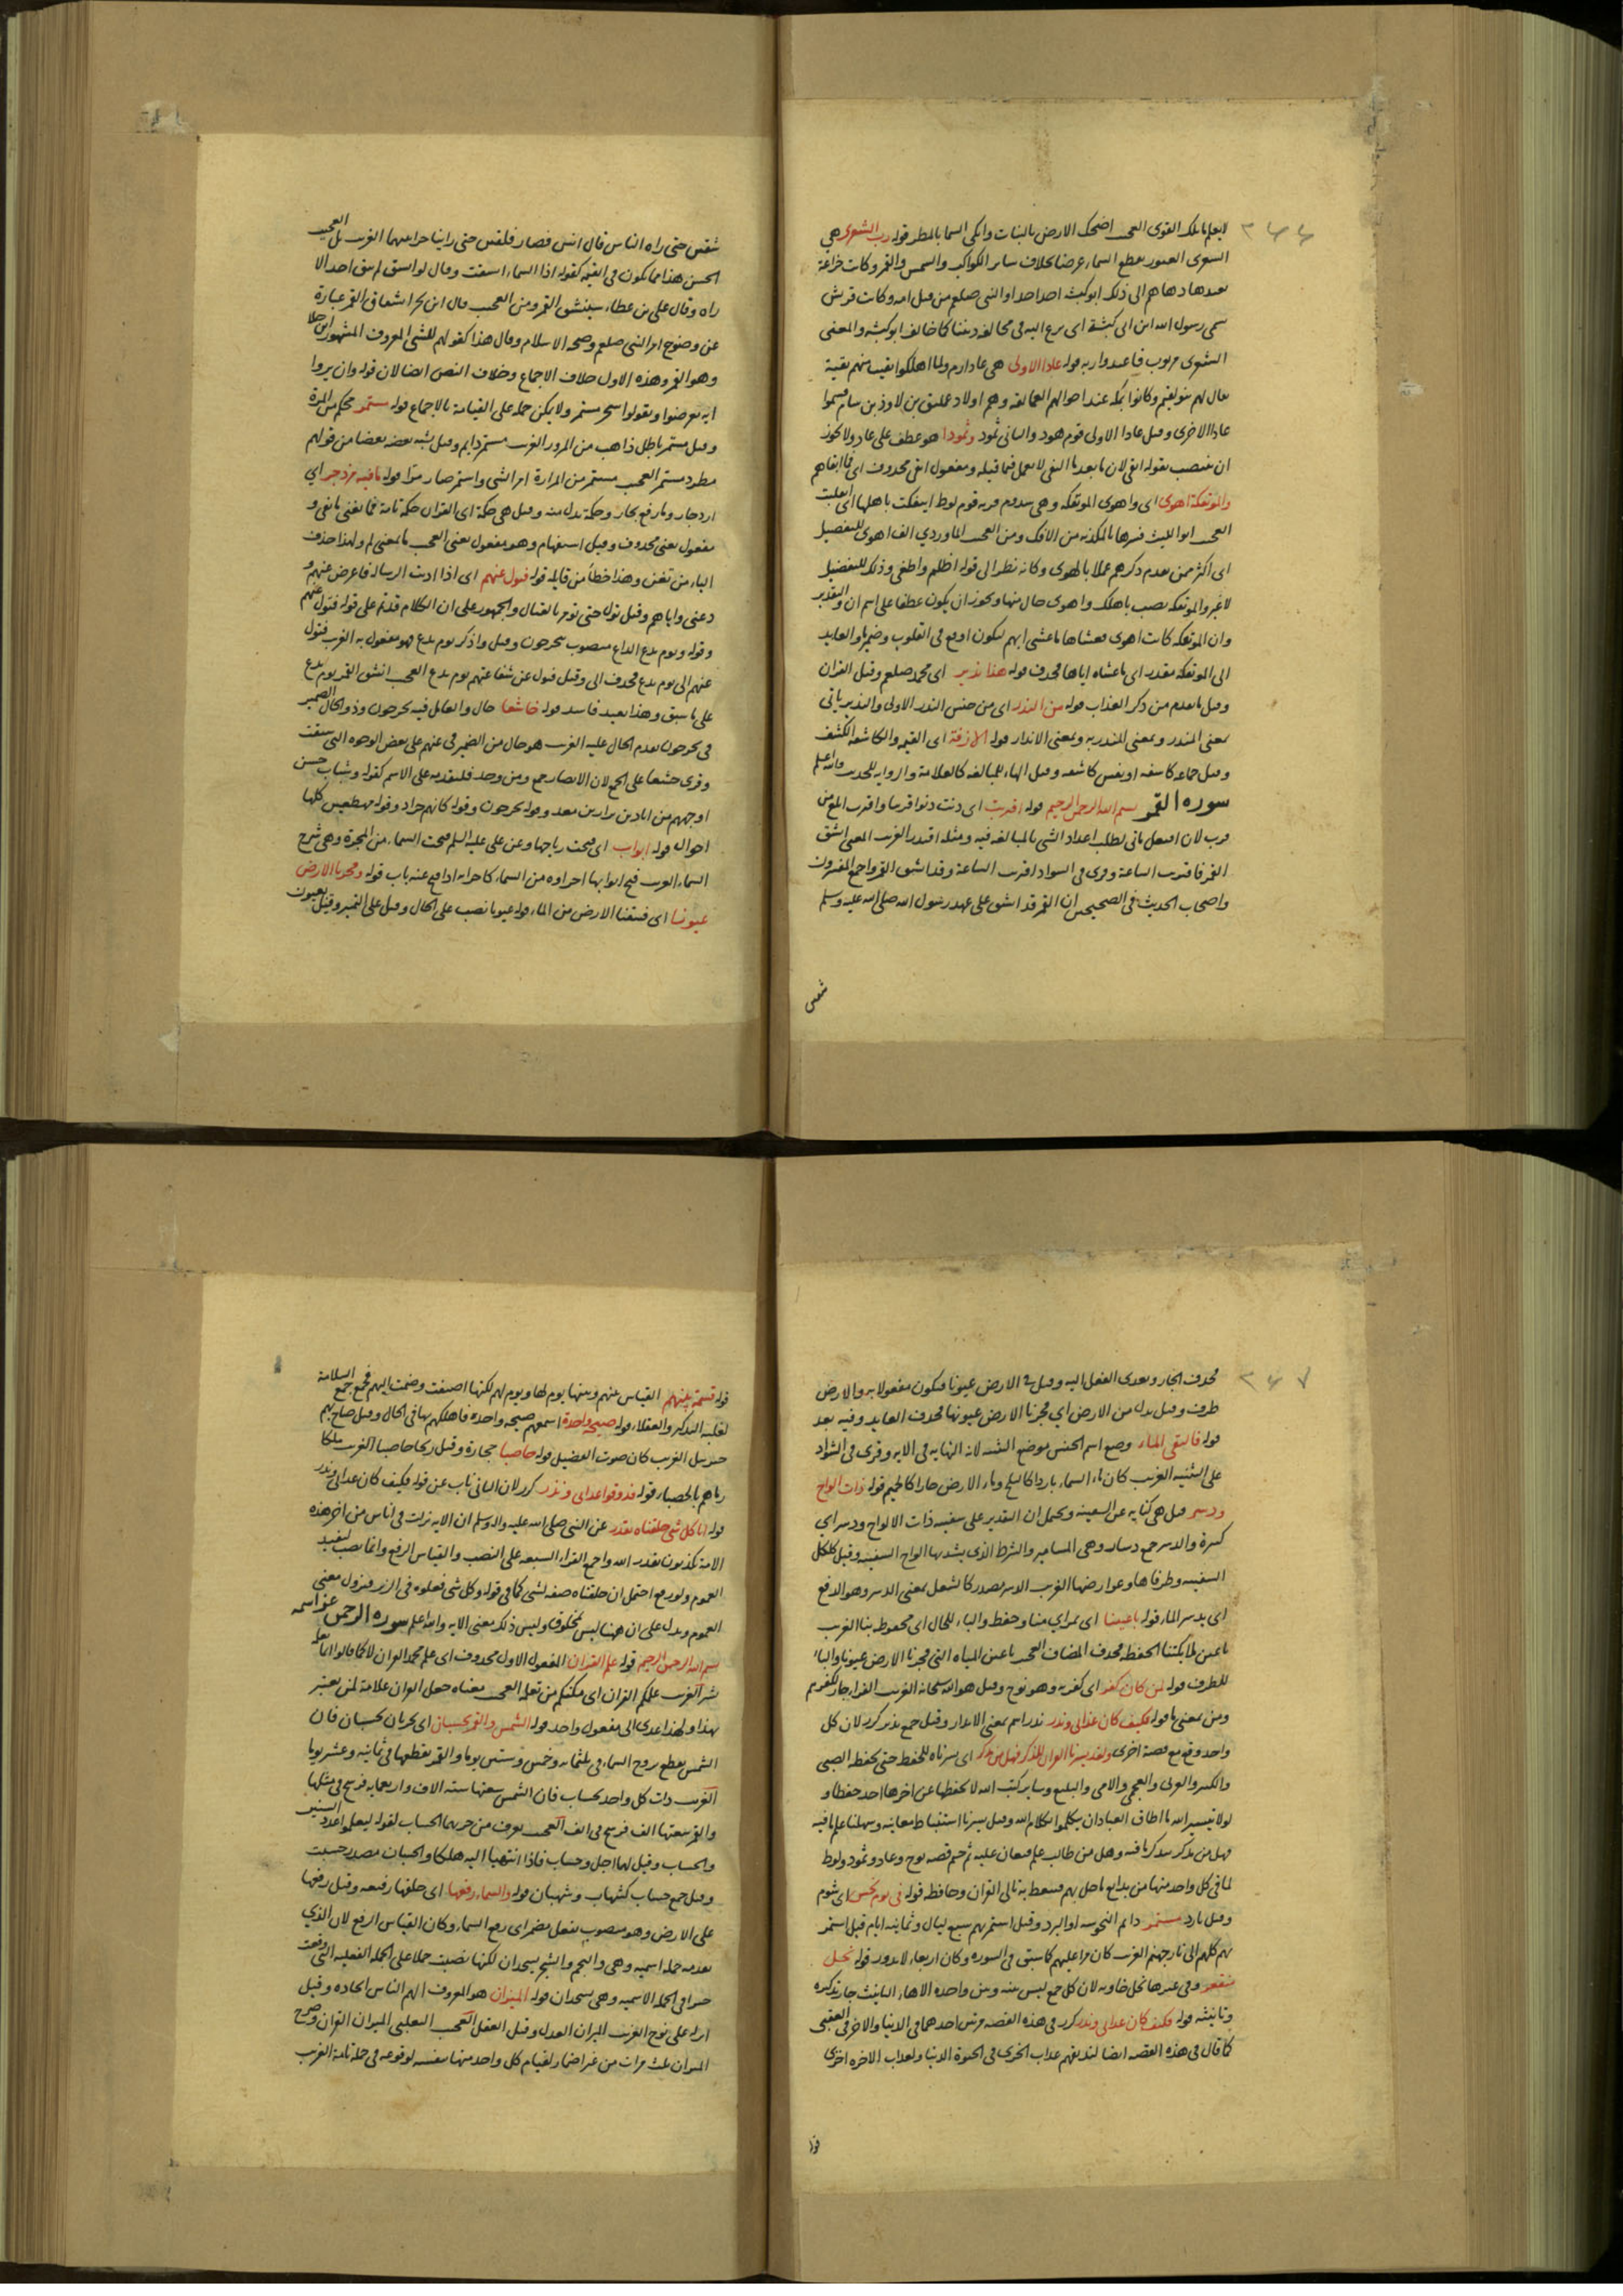 ٢٦٦
لا يعلم ما تلك القوى العجب اضحك الارض بالنبات وابكى السما بالمطر قوله رب الشعرى هي
الشعرى العبور يقطع السماء عرضا بخلاف ساير الكواكب والشمس والقمر وكانت خزاعة
تعبدها دعاهم الى ذلك ابو كبشة احد اجداد النبى صلعم من قبل امه وكانت قريش
سمى رسول الله ابن ابى كبشة اى نزع اليه فى مخالفة ديننا كما خالف ابو كبشه والمعنى
الشعرى مربوب فاعبدوا ربه قوله عادا الاولى هى عاد ارم ولما اهلكوا بقيت منهم بقية
يقال لهم بنو لقيم وكانوا بمكه عند اخوالهم العمالقه وهم اولاد عمليق بن لاوذ بن سام فسموا
عادا الاخرى وقيل عادا الاولى قوم هود والثانى ثمود وثمودا هو عطف على عاد ولا يجوز
ان ينتصب بقوله ابقى لان ما بعد ما النفى لا يعمل فيما قبله ومفعول ابقى محذوف اى فما ابقاهم
والموتفكة اهوى اى واهوى الموتفكه وهى سدوم قريه قوم لوط ايتفكت باهلها اى انقلبت
العجب ابو الليث فسرها بالمكذبه من الافك ومن العجب الماوردي الف اهوى للتفضيل
اى اكثر ممن تقدم ذكرهم عملا بالهوى وكانه نظر الى قوله اظلم واطغى وذلك للتفضيل
لا غير والموتفكه نصب باهلك واهوى حال منها ويجوز ان يكون عطفا على اسم ان والتقدير
وان الموتفكه كانت اهوى فغشاها ما غشى ابهم ليكون اوقع فى القلوب وضمير ما والعايد
الى الموتفكه مقدر اى ما غشاه اياها فحذف قوله هذا نذير اى محمد صلعم وقيل القران
وقيل ما تقدم من ذكر العذاب قوله من النذر اى من جنس النذر الاولى والنذير ياتى
بمعنى المنذر وبمعنى المنذر به وبمعنى الانذار قوله الازفة اى القيمه والكاشفه الكشف
وقيل جماعه كاشفه او نفس كاشفه وقيل الهاء للمبالغه كالعلامة والراويه للحديث والله اعلم
سوره القمر بسم الله الرحمن الرحيم قوله اقتربت اى دنت دنوا قريبا واقترب ابلغ من
قرب لان افتعل ياتى لطلب اعداد الشى بالمبالغه فيه ومثله اقتدر الغريب المعنى انشق
القمر فاقتربت الساعة وقرى فى الشواذ اقتربت الساعة وقد انشق القمر واجمع المفسرون
واصحاب الحديث فى الصحيحين ان القمر قد انشق على عهد رسول الله صلى الله عليه وسلم
شقين
شقين حتى راه الناس قال انس فصار فلقتين حتى راينا حرا بينهما الغريب بل العجيب
الحسن هذا مما يكون فى القيمه كقوله اذا السماء انشقت وقال لو انشق لم يبق احد الا
راه وقال على بن عطاء سينشق القمر ومن العجب قال ابن بحر انشقاق القمر عبارة
عن وضوح امر النبى صلعم وصحه الاسلام وقال هذا كقولهم للشى المعروف المشهور ابن جلا
وهو القمر وهذه الاول خلاف الاجماع وخلاف النص ايضا لان قوله وان يروا
ايه يعرضوا ويقولوا سحر مستمر ولا يمكن حمله على القيامة بالاجماع قوله مستمر محكم من المرة
وقيل مستمر باطل ذاهب من المرور الغريب مستمر دايم وقيل يشبه بعضه بعضا من قولهم
مطرد مستمر العجب مستمر من المرارة امر الشى واستمر صار مرا قوله ما فيه مزدجر اي
ازدجار وما رفع بجار وحكمة بدل منه وقيل هى حكمة اى القران حكمة تامة فما تغنى ما نفى و
مفعول تغنى محذوف وقيل استفهام وهو مفعول تغنى العجب ما بمعنى لم ولهذا حذف
الياء من تغن وهذا خطأ من قايله قوله فتول عنهم اى اذا ادبت الرسالة فاعرض عنهم و
دعنى واياهم وقيل تول حتى تومر بالقتال والجمهور على ان الكلام قد تم على قوله فتول عنهم
وقوله ويوم يدع الداع منصوب بخرجون وقيل واذكر يوم يدع فهو مفعول به الغريب فتول
عنهم الى يوم يدع فحذف الى وقيل فتول عن شفاعتهم يوم يدع العجب انشق القمر يوم يدع
على ما سبق وهذا بعيد فاسد قوله خاشعا حال والعامل فيه يخرجون وذو الحال الضمير
فى يخرجون تقدم الحال عليه الغريب هو حال من الضمير فى عنهم على بعض الوجوه التى سبقت
وقرى خشعا على الجمع لان الابصار جمع ومن وحد فلتقدمه على الاسم كقوله وشباب حسن
اوجههم من اياد بن نزار بن معد وقوله يخرجون وقوله كانهم جراد وقوله مهطعين كلها
احوال قوله ابواب اى فتحت رتاجها وعن على عليه السلم فتحت السماء من المجرة وهى شرج
السماء الغريب فتح ابوابها اجراوه من السماء كاجرايه اذا فتح عنه باب قوله وفجرنا الارض
عيونا اى فتقنا الارض من الماء قوله عيونا نصب على الحال وقيل على التمييز وقيل بعيون
٢٦٧
فحذف الجار وتعدى الفعل اليه وقيل فى الارض عيونا فيكون مفعولا به والارض
ظرف وقيل بدل من الارض اي فجرنا الارض عيونها فحذف العايد وفيه بعد
قوله فالتقى الماء وضع اسم الجنس موضع التثنيه لانه النهايه فى الايه وقرى فى الشواذ
على التثنيه الغريب كان ماء السماء باردا كالثلج وماء الارض حارا كالحميم قوله ذات الواح
ودسر قيل هى كنايه عن السفينه ويحتمل ان التقدير على سفينه ذات الالواح ودسر اي
كسرة والدسر جمع دسار وهى المسامير والشرط الذى يشد بها الواح السفينه وقيل كلكل
السفينه وطرفاها وعوارضها الغريب الدسر مصدر كالشعل بمعنى الدسر وهو الدفع
اى يدسر الماء قوله باعيننا اى بمراي منا وحفظ والباء للحال اى محفوظه بنا الغريب
باعين ملائكتنا الحفظه فحذف المضاف العجب باعين المياه التى فجرنا الارض عيونا والباء
للظرف قوله لمن كان كفر اى كفر به وهو نوح وقيل هو الله سبحانه الغريب الفراء جاز للكفرهم
ومن بمعنى ما قوله فكيف كان عذابى ونذر نذر اسم بمعنى الانذار وقيل جمع نذير كرر لان كل
واحد وقع مع قصة اخرى ولقد يسرنا القران للذكر فهل من مدكر اى يسرناه للحفظ حتى يحفظه الصبى
والكبير والعربى والعجمى والامى والبليغ وساير كتب الله لا يحفظها عن اخرها احد حفظا و
لولا تيسير الله ما اطاق العباد ان يتكلموا بكلام الله وقيل يسرنا استنباط معانيه وسهلنا علم ما فيه
فهل من مدكر يتذكر ما فيه وهل من طالب علم فيعان عليه ثم ختم قصه نوح وعاد وثمود ولوط
لما فى كل واحد منها من بدايع ما حل بهم فيتعظ به تالى القران وحافظه قوله فى يوم نحس اى شوم
وقيل بارد مستمر دايم النحوسه او البرد وقيل استمر بهم سبع ليال وثمانيه ايام قيل استمر
بهم كلهم الى نار جهنم الغريب كان مرا عليهم كما سبق فى السوره وكان اربعاء لا يدور قوله نخل
منقعر وفى غيرها نخل خاويه لان كل جمع ليس بينه وبين واحده الا الهاء التانيث جاز تذكيره
وتانيثه قوله فكيف كان عذابى ونذر كرر فى هذه القصه مرتين احدهما فى الدنيا والاخر فى العقبى
كما قال فى هذه القصه ايضا لنذيقهم عذاب الخزى فى الحيوة الدنيا ولعذاب الاخره اخزى
قوله
قوله قسمة بينهم القياس بينهم وبينها يوم لها ويوم لهم لكنها اضيفت وضمت اليهم فجمع جمع السلامة
لغلبه التذكير والعقلاء قوله صيحة واحدة اسمعهم صيحه واحده فاهلكهم بها فى الحال وقيل صاح بهم
جبريل الغريب كان صوت الفصيل قوله حاصبا حجارة وقيل ريحا حاصبا الغريب ملكا
رماهم بالحصباء قوله فذوقوا عذابى ونذر كرر لان الثانى ناب عن قوله فكيف كان عذابى ونذر
قوله انا كل شى خلقناه بقدر عن النبى صلى الله عليه واله وسلم ان الايه نزلت فى اناس من اخر هذه
الامة يكذبون بقدر الله واجمع القراء السبعه على النصب والقياس الرفع وانما نصب ليفيد
العموم ولو رفع احتمل ان خلقناه صفه لشى كما فى قوله وكل شى فعلوه فى الزبر فيزول معنى
العموم ويدل على ان ههنا ليس بمخلوق وليس ذلك معنى الايه والله اعلم سوره الرحمن عز اسمه
بسم الله الرحمن الرحيم قوله علم القران المفعول الاول محذوف اى علم محمد القران لا كما قالوا انما يعلمه
بشر الغريب علمكم القران اى مكنكم من تعلمه العجب معناه جعل القران علامة لمن يعتبر
بهذا ولهذا عدى الى مفعول واحد قوله الشمس والقمر بحسبان اى يجريان بحسبان فان
الشمس يقطع بروج السماء فى ثلثمايه وخمس وستين يوما والقمر يقطعها فى ثمانيه وعشر يوما
الغريب ذات كل واحد بحساب فان الشمس سعتها سته الاف واربعمايه فرسخ فى مثلها
والقمر سعتها الف فرسخ فى الف العجب يعرف من جريهما الحساب لقوله ليعلموا عدد السنين
والحساب وقيل لهما اجل وحساب فاذا انتهيا اليه هلكا والحسبان مصدر حسبت
وقيل جمع حساب كشهاب وشهبان قوله والسماء رفعها اى خلقها رفيعه وقيل رفعها
على الارض وهو منصوب بفعل مضمر اى رفع السماء وكان القياس الرفع لان الذي
تقدمه جمله اسميه وهى والنجم والشجر يسجدان لكنها نصبت حملا على الجمله الفعليه التى وقعت
خبرا فى الجمله الاسميه وهى يسجدان قوله الميزان هو المعروف الهم الناس اتخاذه وقيل
انزله على نوح الغريب الميزان العدل وقيل العقل العجب الثعلبى الميزان القران وصرح
الميزان ثلث مرات من غير اضمار لقيام كل واحد منها بنفسه لوقوعه فى جملة تامة الغريب